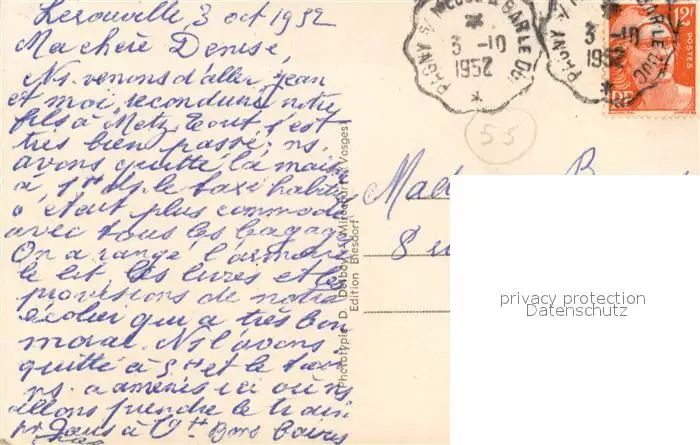 Lerouville, 3 oct 1952
Ma chère Denise,
Ns. venons d'aller, Jean
et moi, reconduire notre
fils à Metz. Tout s'est
très bien passé; ns.
avons quitté la maison
à 1H ds le taxi habituel
c'était plus commode
avec tous les bagages
On a rangé l'armoire
le lit, les livres et les
provisions de notre
écolier qui a très bon
moral. Ns l'avons
quitté à 5H et le taxi
ns. a amenés ici où ns
allons prendre le train
pr à 9H Bons baisers
PAGNY S/ MEUSE A BAR LE DUC
3 -10
1952
PAGNY S/ BAR LE DUC
3 -10
1952
12F
POSTES
RF
55
Mad
8 u
Phototypie D. Delboy - Mirecourt - Vosges
Edition Biesdorf
privacy protection
Datenschutz